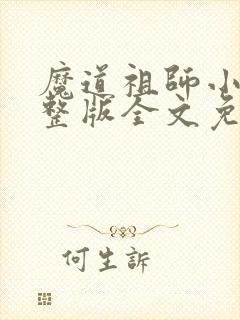 魔道祖師小
整版全文免
何生訴